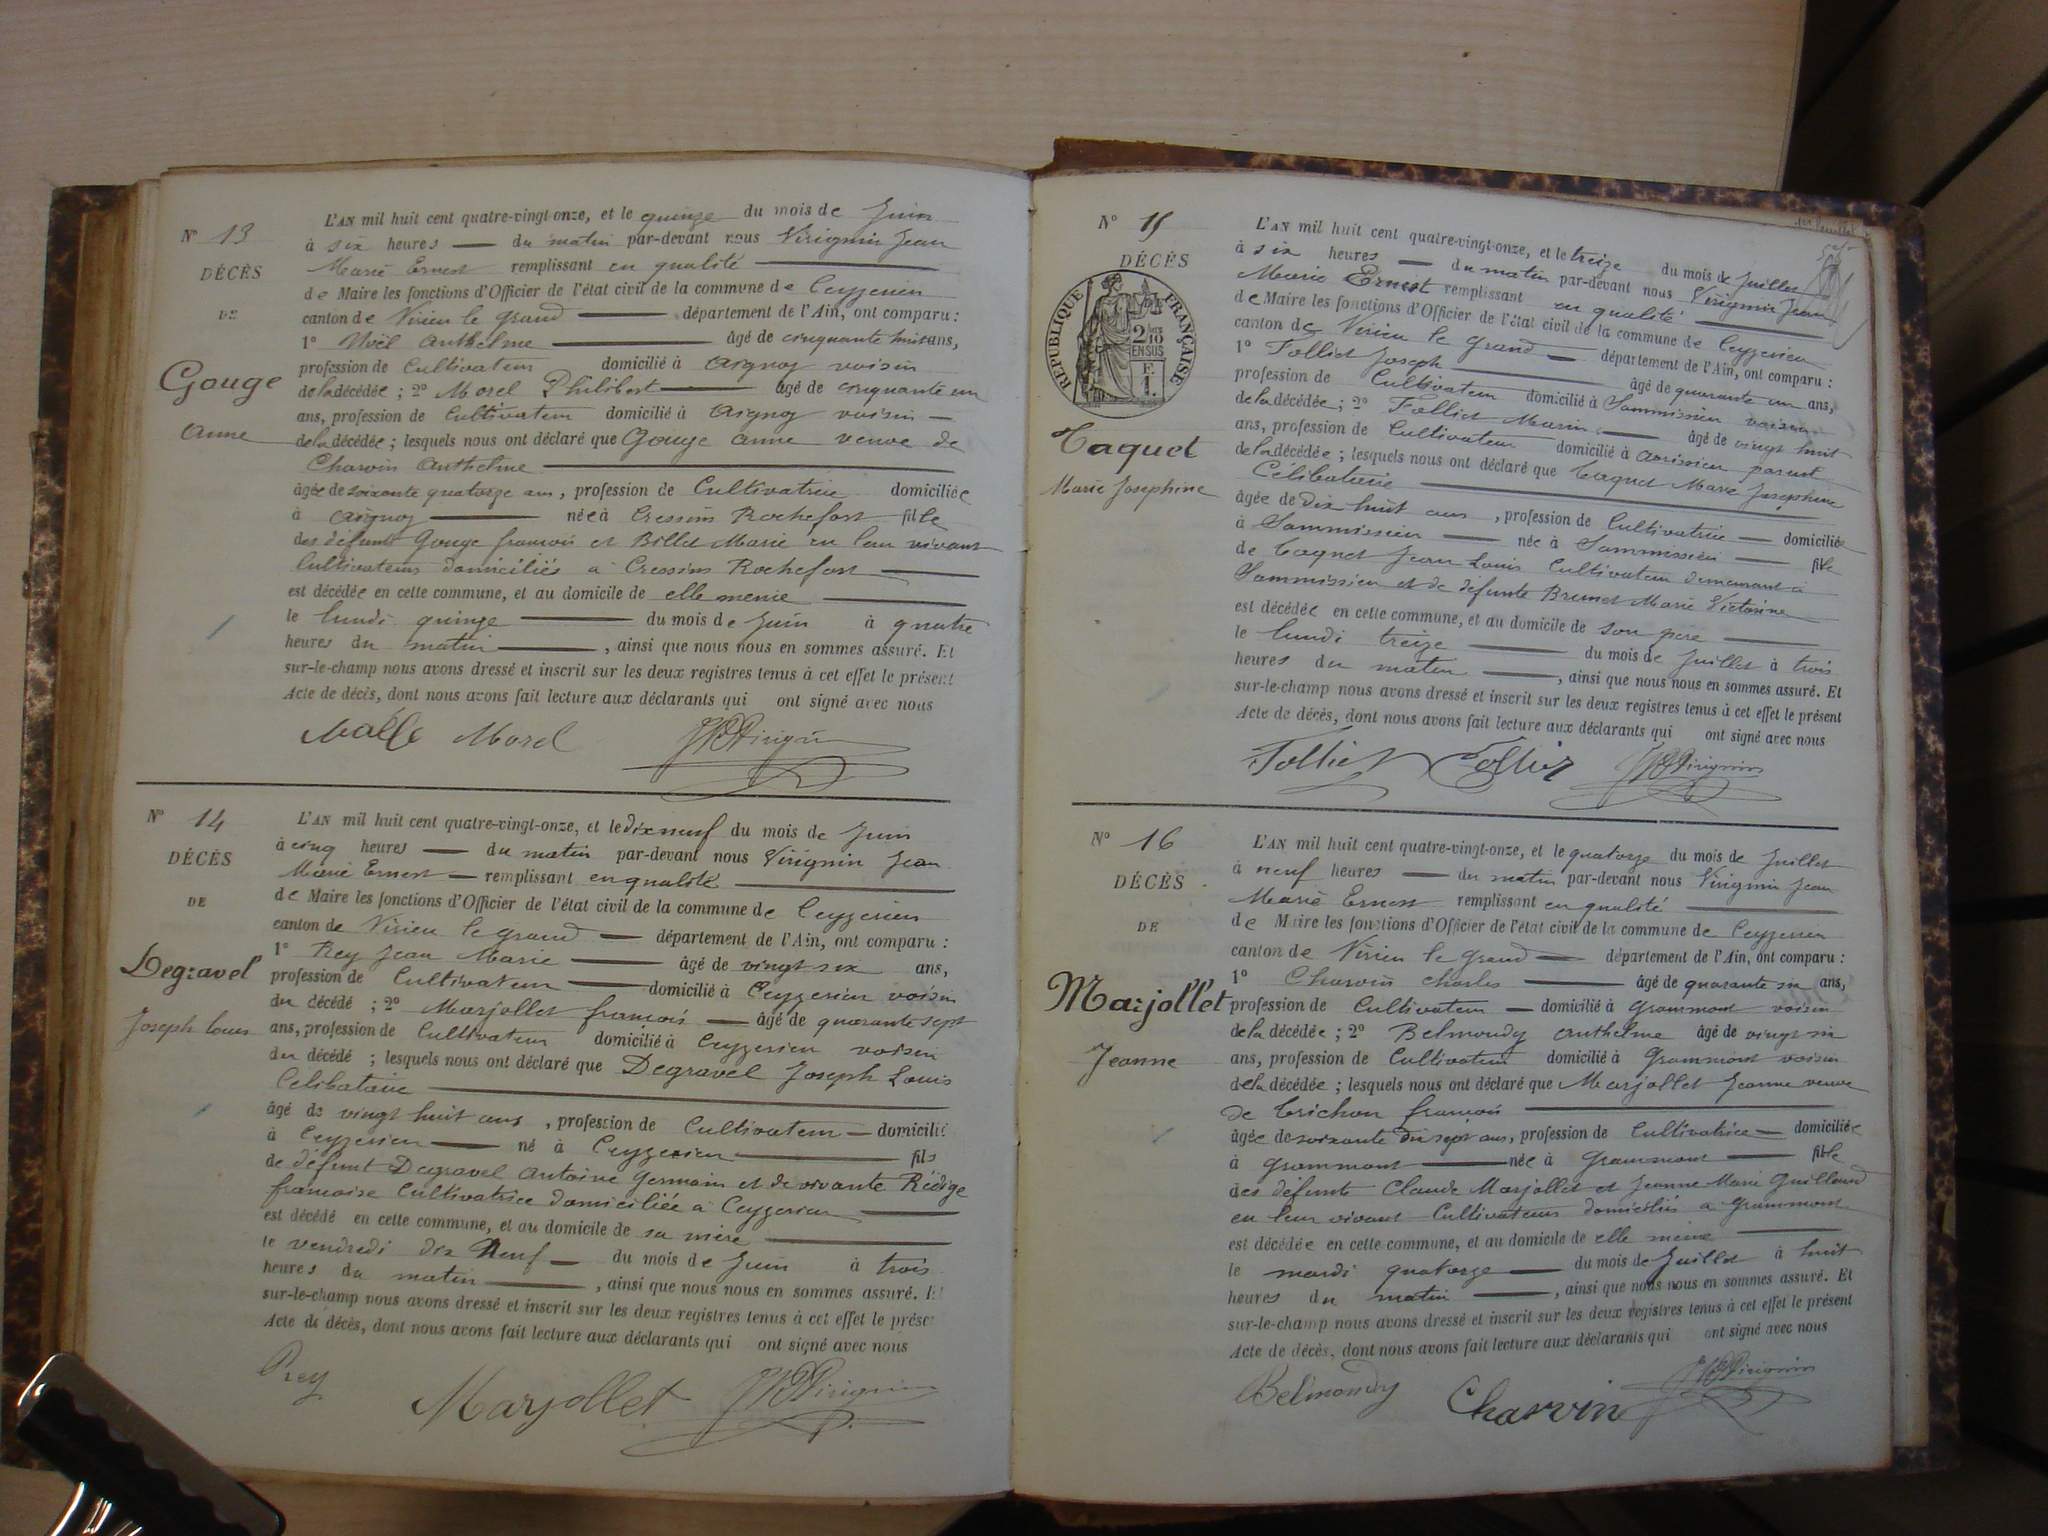 N° 13
DÉCÈS
DE
Gouge
Anne
L'AN mil huit cent quatre-vingt-onze, et le quinze du mois de Juin
à six heures du matin par-devant nous Virignin Jean
Marie Ernest remplissant en qualité
de Maire les fonctions d'Officier de l'état civil de la commune de Ceyzerieu
canton de Virieu le grand département de l'Ain, ont comparu :
1° Noël Anthelme âgé de cinquante huit ans,
profession de Cultivateur domicilié à Aignoz voisin
de la décédée ; 2° Morel Philibert âgé de cinquante un
ans, profession de Cultivateur domicilié à Aignoz voisin
de la décédée ; lesquels nous ont déclaré que Gouge Anne veuve de
Charvin Anthelme
âgée de soixante quatorze ans, profession de Cultivatrice domiciliée
à Aignoz née à Cressins Rochefort fille
des défunts Gouge françois et Billet Marie en leur vivant
Cultivateurs domiciliés à Cressins Rochefort
est décédée en cette commune, et au domicile de elle meme
le lundi quinze du mois de Juin à quatre
heures du matin, ainsi que nous nous en sommes assuré. Et
sur-le-champ nous avons dressé et inscrit sur les deux registres tenus à cet effet le présent
Acte de décès, dont nous avons fait lecture aux déclarants qui ont signé avec nous
Morel Virignin
N° 14
DÉCÈS
DE
Degravel
Joseph Louis
L'AN mil huit cent quatre-vingt-onze, et le dix neuf du mois de Juin
à cinq heures du matin par-devant nous Virignin Jean
Marie Ernest remplissant en qualité
de Maire les fonctions d'Officier de l'état civil de la commune de Ceyzerieu
canton de Virieu le grand département de l'Ain, ont comparu :
1° Rey Jean Marie âgé de vingt six ans,
profession de Cultivateur domicilié à Ceyzerieu voisin
du décédé ; 2° Marjollet françois âgé de quarante sept
ans, profession de Cultivateur domicilié à Ceyzerieu voisin
du décédé ; lesquels nous ont déclaré que Degravel Joseph Louis
Celibataire
âgé de vingt huit ans, profession de Cultivateur domicilié
à Ceyzerieu né à Ceyzerieu fils
de défunt Degravel Antoine Germain et de vivante
francoise Cultivatrice domiciliée à Ceyzerieu
est décédé en cette commune, et au domicile de sa mère
le vendredi dix Neuf du mois de Juin à trois
heures du matin, ainsi que nous nous en sommes assuré. Et
sur-le-champ nous avons dressé et inscrit sur les deux registres tenus à cet effet le prése
Acte de décès, dont nous avons fait lecture aux déclarants qui ont signé avec nous
Rey Marjollet Virignin
N° 15
DÉCÈS
RÉPUBLIQUE FRANÇAISE
2/10
EN SUS
F.
1.
Taquet
Marie Josephine
L'AN mil huit cent quatre-vingt-onze, et le treize du mois de Juillet
à six heures du matin par-devant nous Virignin Jean
Marie Ernest remplissant en qualité
de Maire les fonctions d'Officier de l'état civil de la commune de Ceyzerieu
canton de Virieu le grand département de l'Ain, ont comparu :
1° Folliet Joseph âgé de quarante un ans,
profession de Cultivateur domicilié à Sammissieu voisin
de la décédée ; 2° Folliet Marin âgé de vingt huit
ans, profession de Cultivateur domicilié à parent
de la décédée ; lesquels nous ont déclaré que Taquet Marie Josephine
Célibataire
âgée de dix huit ans, profession de Cultivatrice domiciliée
à Sammissieu née à Sammissieu fille
de Taquet Jean Louis Cultivateur demeurant à
Sammissieu et de défunte Brunet Marie Victorine
est décédée en cette commune, et au domicile de son père
le lundi treize du mois de Juillet à trois
heures du matin, ainsi que nous nous en sommes assuré. Et
sur-le-champ nous avons dressé et inscrit sur les deux registres tenus à cet effet le présent
Acte de décès, dont nous avons fait lecture aux déclarants qui ont signé avec nous
Folliet Folliet Virignin
N° 16
DÉCÈS
DE
Marjollet
Jeanne
L'AN mil huit cent quatre-vingt-onze, et le quatorze du mois de Juillet
à neuf heures du matin par-devant nous Virignin Jean
Marie Ernest remplissant en qualité
de Maire les fonctions d'Officier de l'état civil de la commune de Ceyzerieu
canton de Virieu le grand département de l'Ain, ont comparu :
1° Charvin Charles âgé de quarante six ans,
profession de Cultivateur domicilié à Grammont voisin
de la décédée ; 2° Belmondy Anthelme âgé de vingt six
ans, profession de Cultivateur domicilié à Grammont voisin
de la décédée ; lesquels nous ont déclaré que Marjollet Jeanne veuve
de Trichon françois
âgée de soixante dix sept ans, profession de Cultivatrice domiciliée
à Grammont née à Grammont fille
des défunts Claude Marjollet et Jeanne Marie Guilland
en leur vivant Cultivateurs domiciliés à Grammont
est décédée en cette commune, et au domicile de elle meme
le mardi quatorze du mois de Juillet à huit
heures du matin, ainsi que nous nous en sommes assuré. Et
sur-le-champ nous avons dressé et inscrit sur les deux registres tenus à cet effet le présent
Acte de décès, dont nous avons fait lecture aux déclarants qui ont signé avec nous
Belmondy Charvin Virignin